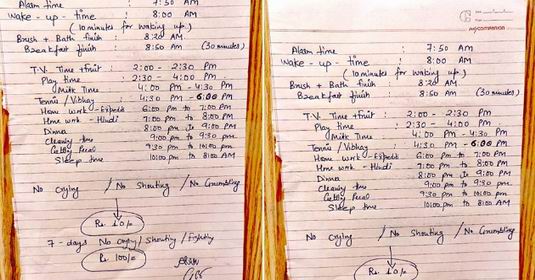 Alarm time : 7:50 AM
Wake - up - time : 8:00 AM
(10 minutes for waking up)
Brush + Bath finish : 8:20 AM
Breakfast finish : 8:50 AM (30 minutes)
T.V. Time + fruit : 2:00 - 2:30 PM
Play time : 2:30 - 4:00 PM
Milk Time : 4:00 PM - 4:30 PM
Tennis / Vibhay : 4:30 PM - 6:00 PM
Home work - : 6:00 PM to 7:00 PM
Home work - Hindi : 7:00 PM to 8:00 PM
Dinner : 8:00 PM to 9:00 PM
Cleany time : 9:00 PM to 9:30 PM
9:30 PM to 10:00 PM
Sleep time 10:00 PM to 8:00 AM
No Crying / No Shouting / No Grumbling
Rs 10/-
7 - days No cry / shouting / fighting
Rs 100/=
Alarm time : 7:50 AM
Wake - up - time : 8:00 AM
(10 minutes for waking up)
Brush + Bath finish : 8:20 AM
Breakfast finish : 8:50 AM (30 minutes)
T.V. Time + fruit : 2:00 - 2:30 PM
Play time : 2:30 - 4:00 PM
Milk Time : 4:00 PM - 4:30 PM
Tennis / Vibhay : 4:30 PM - 6:00 PM
Home work - : 6:00 PM to 7:00 PM
Home work - Hindi : 7:00 PM to 8:00 PM
Dinner : 8:00 PM to 9:00 PM
Cleany time 9:00 PM to 9:30 PM
9:30 PM to 10:00 PM
Sleep time 10:00 PM to 8:00 AM
No Crying / No Shouting / No Grumbling
Rs 10/-